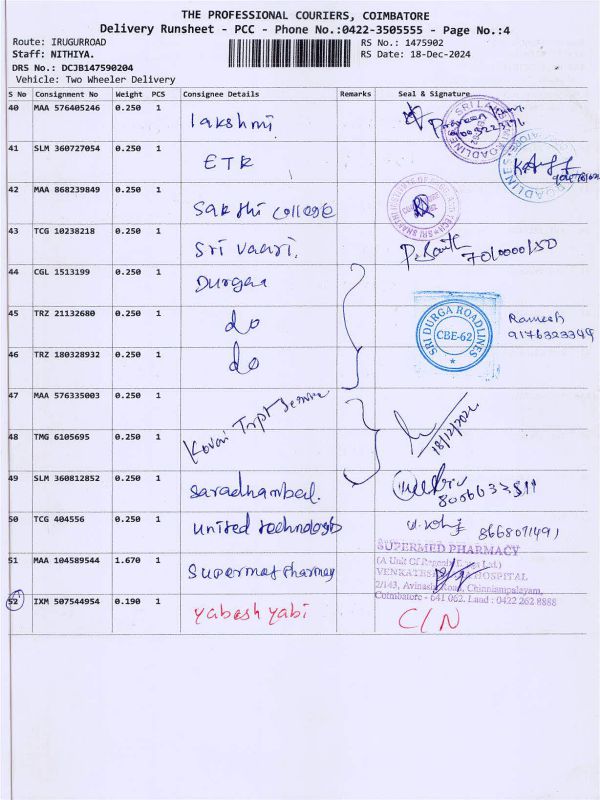 THE PROFESSIONAL COURIERS, COIMBATORE
Delivery Runsheet - PCC - Phone No.:0422-3505555 - Page No.:4
Route: IRUGURROAD
RS No.: 1475902
Staff: NITHIYA.
RS Date: 18-Dec-2024
DRS No.: DCJB147590204
Vehicle: Two Wheeler Delivery
S No Consignment No Weight PCS Consignee Details Remarks Seal & Signature
40 MAA 576405246 0.250 1 lakshmi
41 SLM 360727054 0.250 1 ETR
42 MAA 868239849 0.250 1 Sakthi College
43 TCG 10238218 0.250 1 Sri Vaari.
44 CGL 1513199 0.250 1 Durgaa
45 TRZ 21132680 0.250 1 do
SRI DURGA ROADLINES
CBE-62
Ramesh
9176323349
46 TRZ 180328932 0.250 1 do
47 MAA 576335003 0.250 1 Kovai Trpt Service
18/12/2024
48 TMG 6105695 0.250 1
49 SLM 360812852 0.250 1 Saradhambal.
50 TCG 404556 0.250 1 United technologis
8668071491
51 MAA 104589544 1.670 1 Supermat Pharmay
SUPERMED PHARMACY
(A Unit Of
HOSPITAL
2/143, Avinashi Road, Chinniampalayam,
Coimbatore - 641 062. Land : 0422 262 8888
52 IXM 507544954 0.190 1 Yabesh yabi C/N